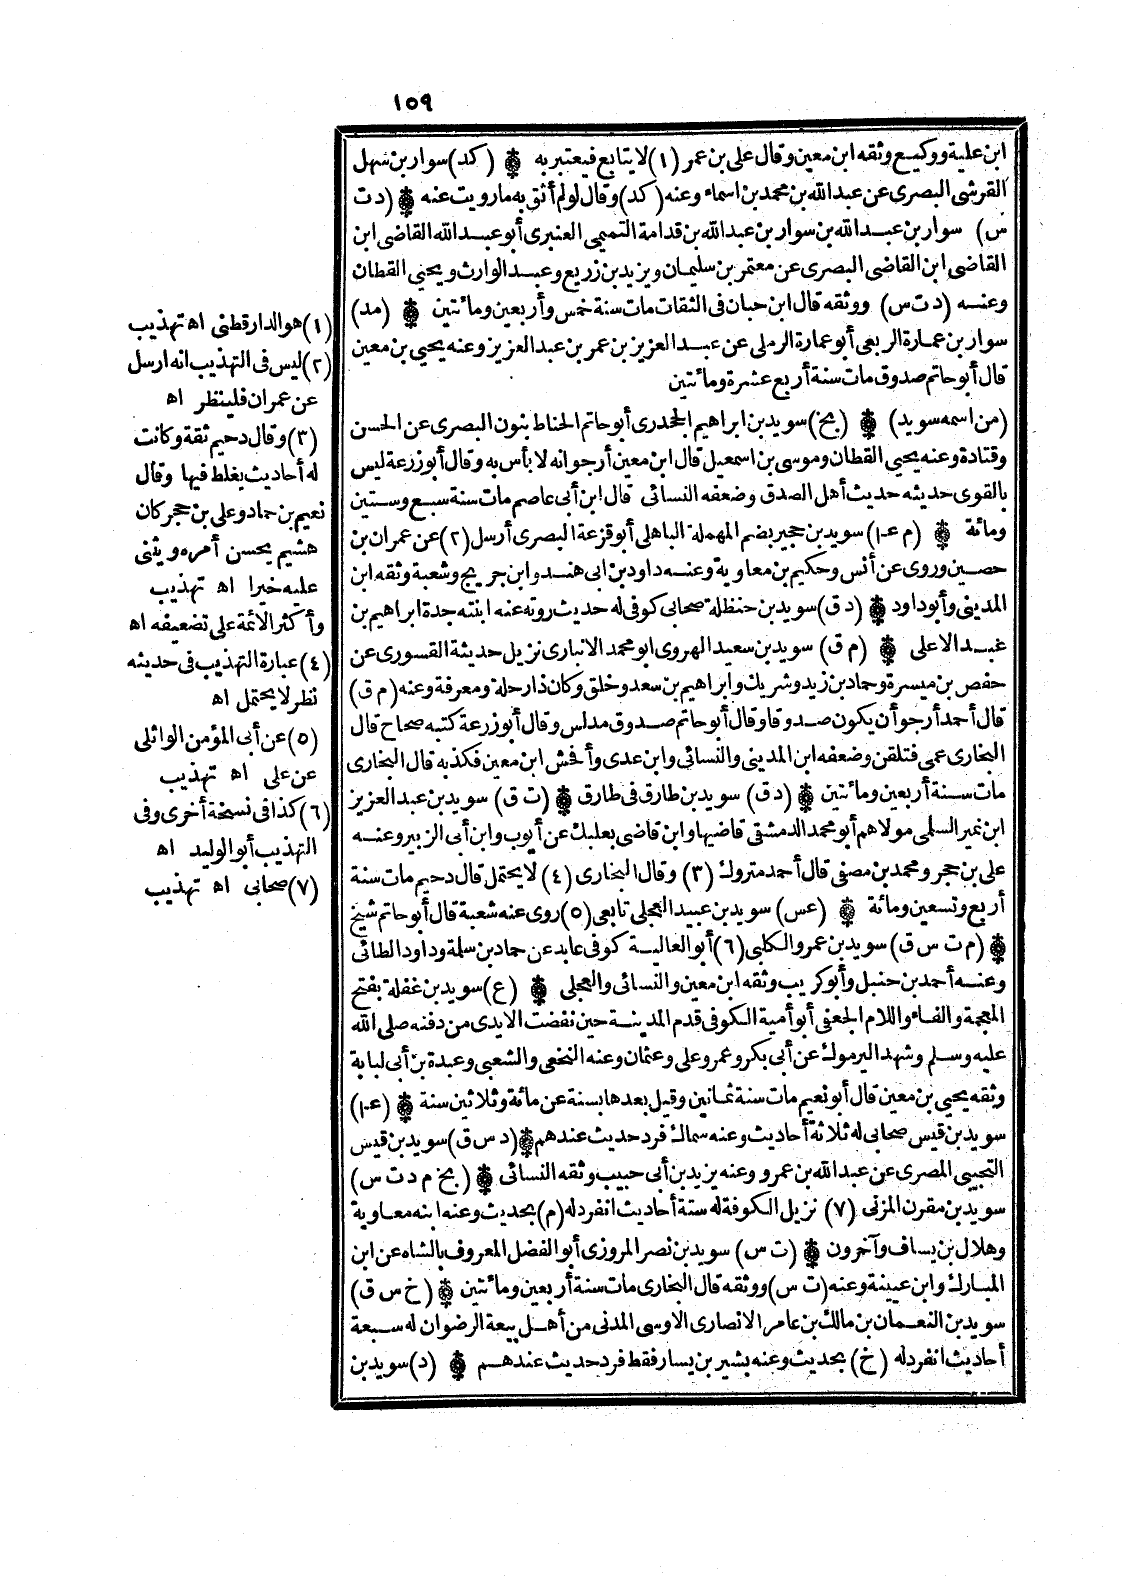 ١٥٩
ابن علية ووكيع وثقه ابن معين وقال على بن عمر (١) لا يتابع فيعتبر به ۞ (كد) سوار بن سهل
القرشى البصرى عن عبد الله بن محمد بن اسماء وعنه (كد) وقال لو لم أثق به ما رويت عنه ۞ (د ت
س) سوار بن عبد الله بن سوار بن عبد الله بن قدامة التميمى العنبرى أبو عبد الله القاضى ابن
القاضى ابن القاضى البصرى عن معتمر بن سليمان ويزيد بن زريع وعبد الوارث ويحيى القطان
وعنه (د ت س) ووثقه قال ابن حبان فى الثقات مات سنة خمس وأربعين ومائتين ۞ (مد)
سوار بن عمارة الربعى أبو عمارة الرملى عن عبد العزيز بن عمر بن عبد العزيز وعنه يحيى بن معين
قال أبو حاتم صدوق مات سنة أربع عشرة ومائتين
(من اسمه سويد) ۞ (بخ) سويد بن ابراهيم الجحدرى أبو حاتم الحناط بنون البصرى عن الحسن
وقتادة وعنه يحيى القطان وموسى بن اسمعيل قال ابن معين أرجو انه لا بأس به وقال أبو زرعة ليس
بالقوى حديثه حديث أهل الصدق وضعفه النسائى قال ابن أبى عاصم مات سنة سبع وستين
ومائة ۞ (م عـ١) سويد بن حجير بضم المهملة الباهلى أبو قزعة البصرى أرسل (٢) عن عمران بن
حصين وروى عن أنس وحكيم بن معاوية وعنه داود بن ابى هند وابن جريج وشعبة وثقه ابن
المدينى وأبو داود ۞ (د ق) سويد بن حنظلة صحابى كوفى له حديث روته عنه ابنته جدة ابراهيم بن
عبد الاعلى ۞ (م ق) سويد بن سعيد الهروى ابو محمد الانبارى نزيل حديثة القسورى عن
حفص بن ميسرة وحماد بن زيد وشريك وابراهيم بن سعد وخلق وكان ذا رحلة ومعرفة وعنه (م ق)
قال أحمد أرجو أن يكون صدوقا وقال أبو حاتم صدوق مدلس وقال أبو زرعة كتبه صحاح قال
البخارى عمى فتلقن وضعفه ابن المدينى والنسائى وابن عدى وأفحش ابن معين فكذبه قال البخارى
مات سنة أربعين ومائتين ۞ (د ق) سويد بن طارق فى طارق ۞ (ت ق) سويد بن عبد العزيز
ابن نمير السلمى مولاهم أبو محمد الدمشقى قاضيها وابن قاضى بعلبك عن أيوب وابن أبى الزبير وعنه
على بن حجر ومحمد بن مصفى قال أحمد متروك (٣) وقال البخارى (٤) لا يحتمل قال دحيم مات سنة
أربع وتسعين ومائة ۞ (عس) سويد بن عبيد العجلى تابعى (٥) روى عنه شعبة قال أبو حاتم شيخ
۞ (م ت س ق) سويد بن عمرو الكلبى (٦) أبو العالية كوفى عابد عن حماد بن سلمة وداود الطائى
وعنه أحمد بن حنبل وأبو كريب وثقه ابن معين والنسائى والعجلى ۞ (ع) سويد بن غفلة بفتح
المعجمة والفاء واللام الجعفى أبو أمية الكوفى قدم المدينة حين نفضت الايدى من دفنه صلى الله
عليه وسلم وشهد اليرموك عن أبى بكر وعمر وعلى وعثمان وعنه النخعى والشعبى وعبدة بن أبى لبابة
وثقه يحيى بن معين قال أبو نعيم مات سنة ثمانين وقيل بعدها بسنة عن مائة وثلاثين سنة ۞ (عـ١)
سويد بن قيس صحابى له ثلاثة أحاديث وعنه سماك فرد حديث عندهم ۞ (د س ق) سويد بن قيس
التجيبى المصرى عن عبد الله بن عمرو وعنه يزيد بن أبى حبيب وثقه النسائى ۞ (بخ م د ت س)
سويد بن مقرن المزنى (٧) نزيل الكوفة له ستة أحاديث انفرد له (م) بحديث وعنه ابنه معاوية
وهلال بن يساف وآخرون ۞ (ت س) سويد بن نصر المروزى أبو الفضل المعروف بالشاه عن ابن
المبارك وابن عيينة وعنه (ت س) ووثقه قال البخارى مات سنة أربعين ومائتين ۞ (خ س ق)
سويد بن النعمان بن مالك بن عامر الانصارى الاوسى المدنى من أهل بيعة الرضوان له سبعة
أحاديث انفرد له (خ) بحديث وعنه بشير بن يسار فقط فرد حديث عندهم ۞ (د) سويد بن
(١) هو الدارقطنى اه تهذيب
(٢) ليس فى التهذيب انه ارسل
عن عمران فلينظر اه
(٣) وقال دحيم ثقة وكانت
له أحاديث يغلط فيها وقال
نعيم بن حماد وعلى بن حجر كان
هشيم يحسن أمره ويثنى
عليه خيرا اه تهذيب
وأكثر الائمة على تضعيفه اه
(٤) عبارة التهذيب فى حديثه
نظر لا يحتمل اه
(٥) عن أبى المؤمن الوائلى
عن على اه تهذيب
(٦) كذا فى نسخة أخرى وفى
التهذيب أبو الوليد اه
(٧) صحابى اه تهذيب